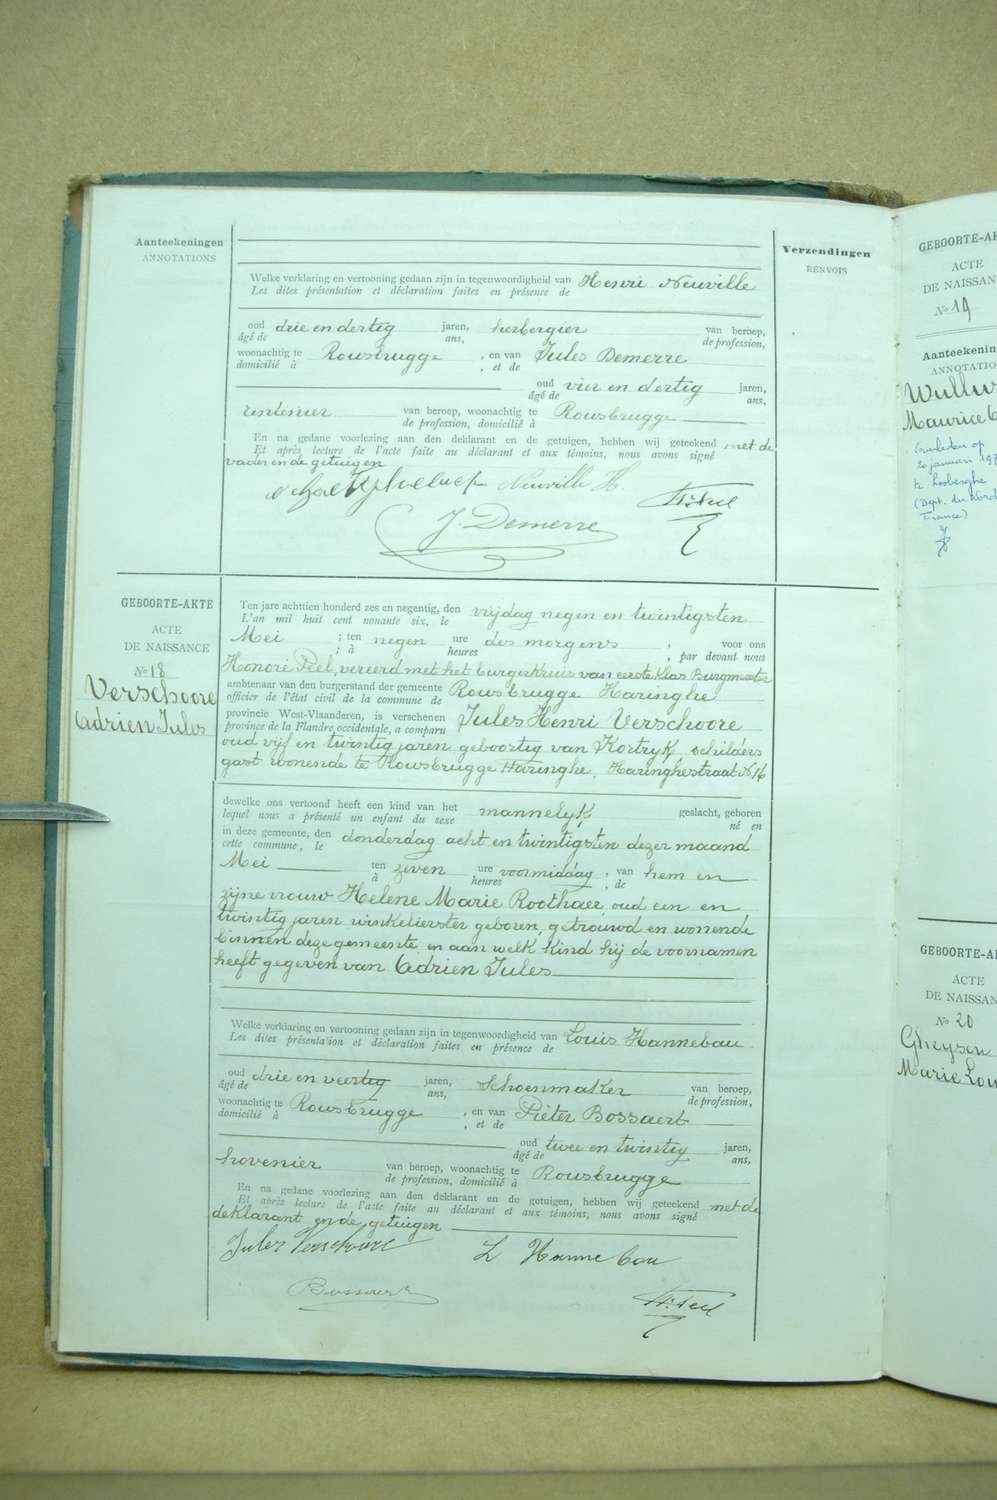 Aanteekeningen
ANNOTATIONS
Verzendingen
RENVOIS
Welke verklaring en vertooning gedaan zijn in tegenwoordigheid van Henri Neuville
Les dites présentation et déclaration faites en présence de
oud drie en dertig jaren, herbergier van beroep,
âgé de ans, de profession,
woonachtig te Rousbrugge , en van Jules Demerre
domicilié à , et de
oud vier en dertig jaren,
âgé de ans,
rentenier van beroep, woonachtig te Rousbrugge
de profession, domicilié à
En na gedane voorlezing aan den deklarant en de getuigen, hebben wij geteekend met de
Et après lecture de l'acte faite au déclarant et aux témoins, nous avons signé
vader en de getuigen
Neuville H.
J. Demerre
GEBOORTE-AKTE
ACTE
DE NAISSANCE
No 18
Verschoore
Adrien Jules
Ten jare achttien honderd zes en negentig, den vrijdag negen en twintigsten
L'an mil huit cent nonante six, le
Mei ; ten negen ure des morgens , voor ons
; à heures , par devant nous
Honoré Peel, vereerd met het burgerkruis van eerste klas Burgmeester
ambtenaar van den burgerstand der gemeente Rousbrugge Haringhe
officier de l'état civil de la commune de
provincie West-Vlaanderen, is verschenen Jules Henri Verschoore
province de la Flandre occidentale, a comparu
oud vijf en twintig jaren geboortig van Kortryk schilders
gast wonende te Rousbrugge Haringhe, Haringhestraat No 16
dewelke ons vertoond heeft een kind van het mannelyk geslacht, geboren
lequel nous a présenté un enfant du sexe né en
in deze gemeente, den donderdag acht en twintigsten dezer maand
cette commune, le
Mei ten zeven ure voormiddag , van hem en
à heures , de
zijne vrouw Helene Marie Roothaer, oud een en
twintig jaren winkelierster geboren, getrouwd en wonende
binnen deze gemeente en aan welk kind hij de voornamen
heeft gegeven van Adrien Jules
Welke verklaring en vertooning gedaan zijn in tegenwoordigheid van Louis Hannebau
Les dites présentation et déclaration faites en présence de
oud drie en veertig jaren, Schoenmaker van beroep,
âgé de ans, de profession,
woonachtig te Rousbrugge , en van Pieter Bossaert
domicilié à , et de
oud twee en twintig jaren,
âgé de ans,
hovenier van beroep, woonachtig te Rousbrugge
de profession, domicilié à
En na gedane voorlezing aan den deklarant en de getuigen, hebben wij geteekend met de
Et après lecture de l'acte faite au déclarant et aux témoins, nous avons signé
deklarant en de getuigen
Jules Verschoore L Hannebau
Bossaert
Hré Peel
GEBOORTE-AK
ACTE
DE NAISSAN
No 19
Aanteekenin
ANNOTATIO
Maurice
Overleden op
20 januari 197
te
(Dept. du Nord
France)
GEBOORTE-A
ACTE
DE NAISSAN
No 20
Gheysen
Marie Lou